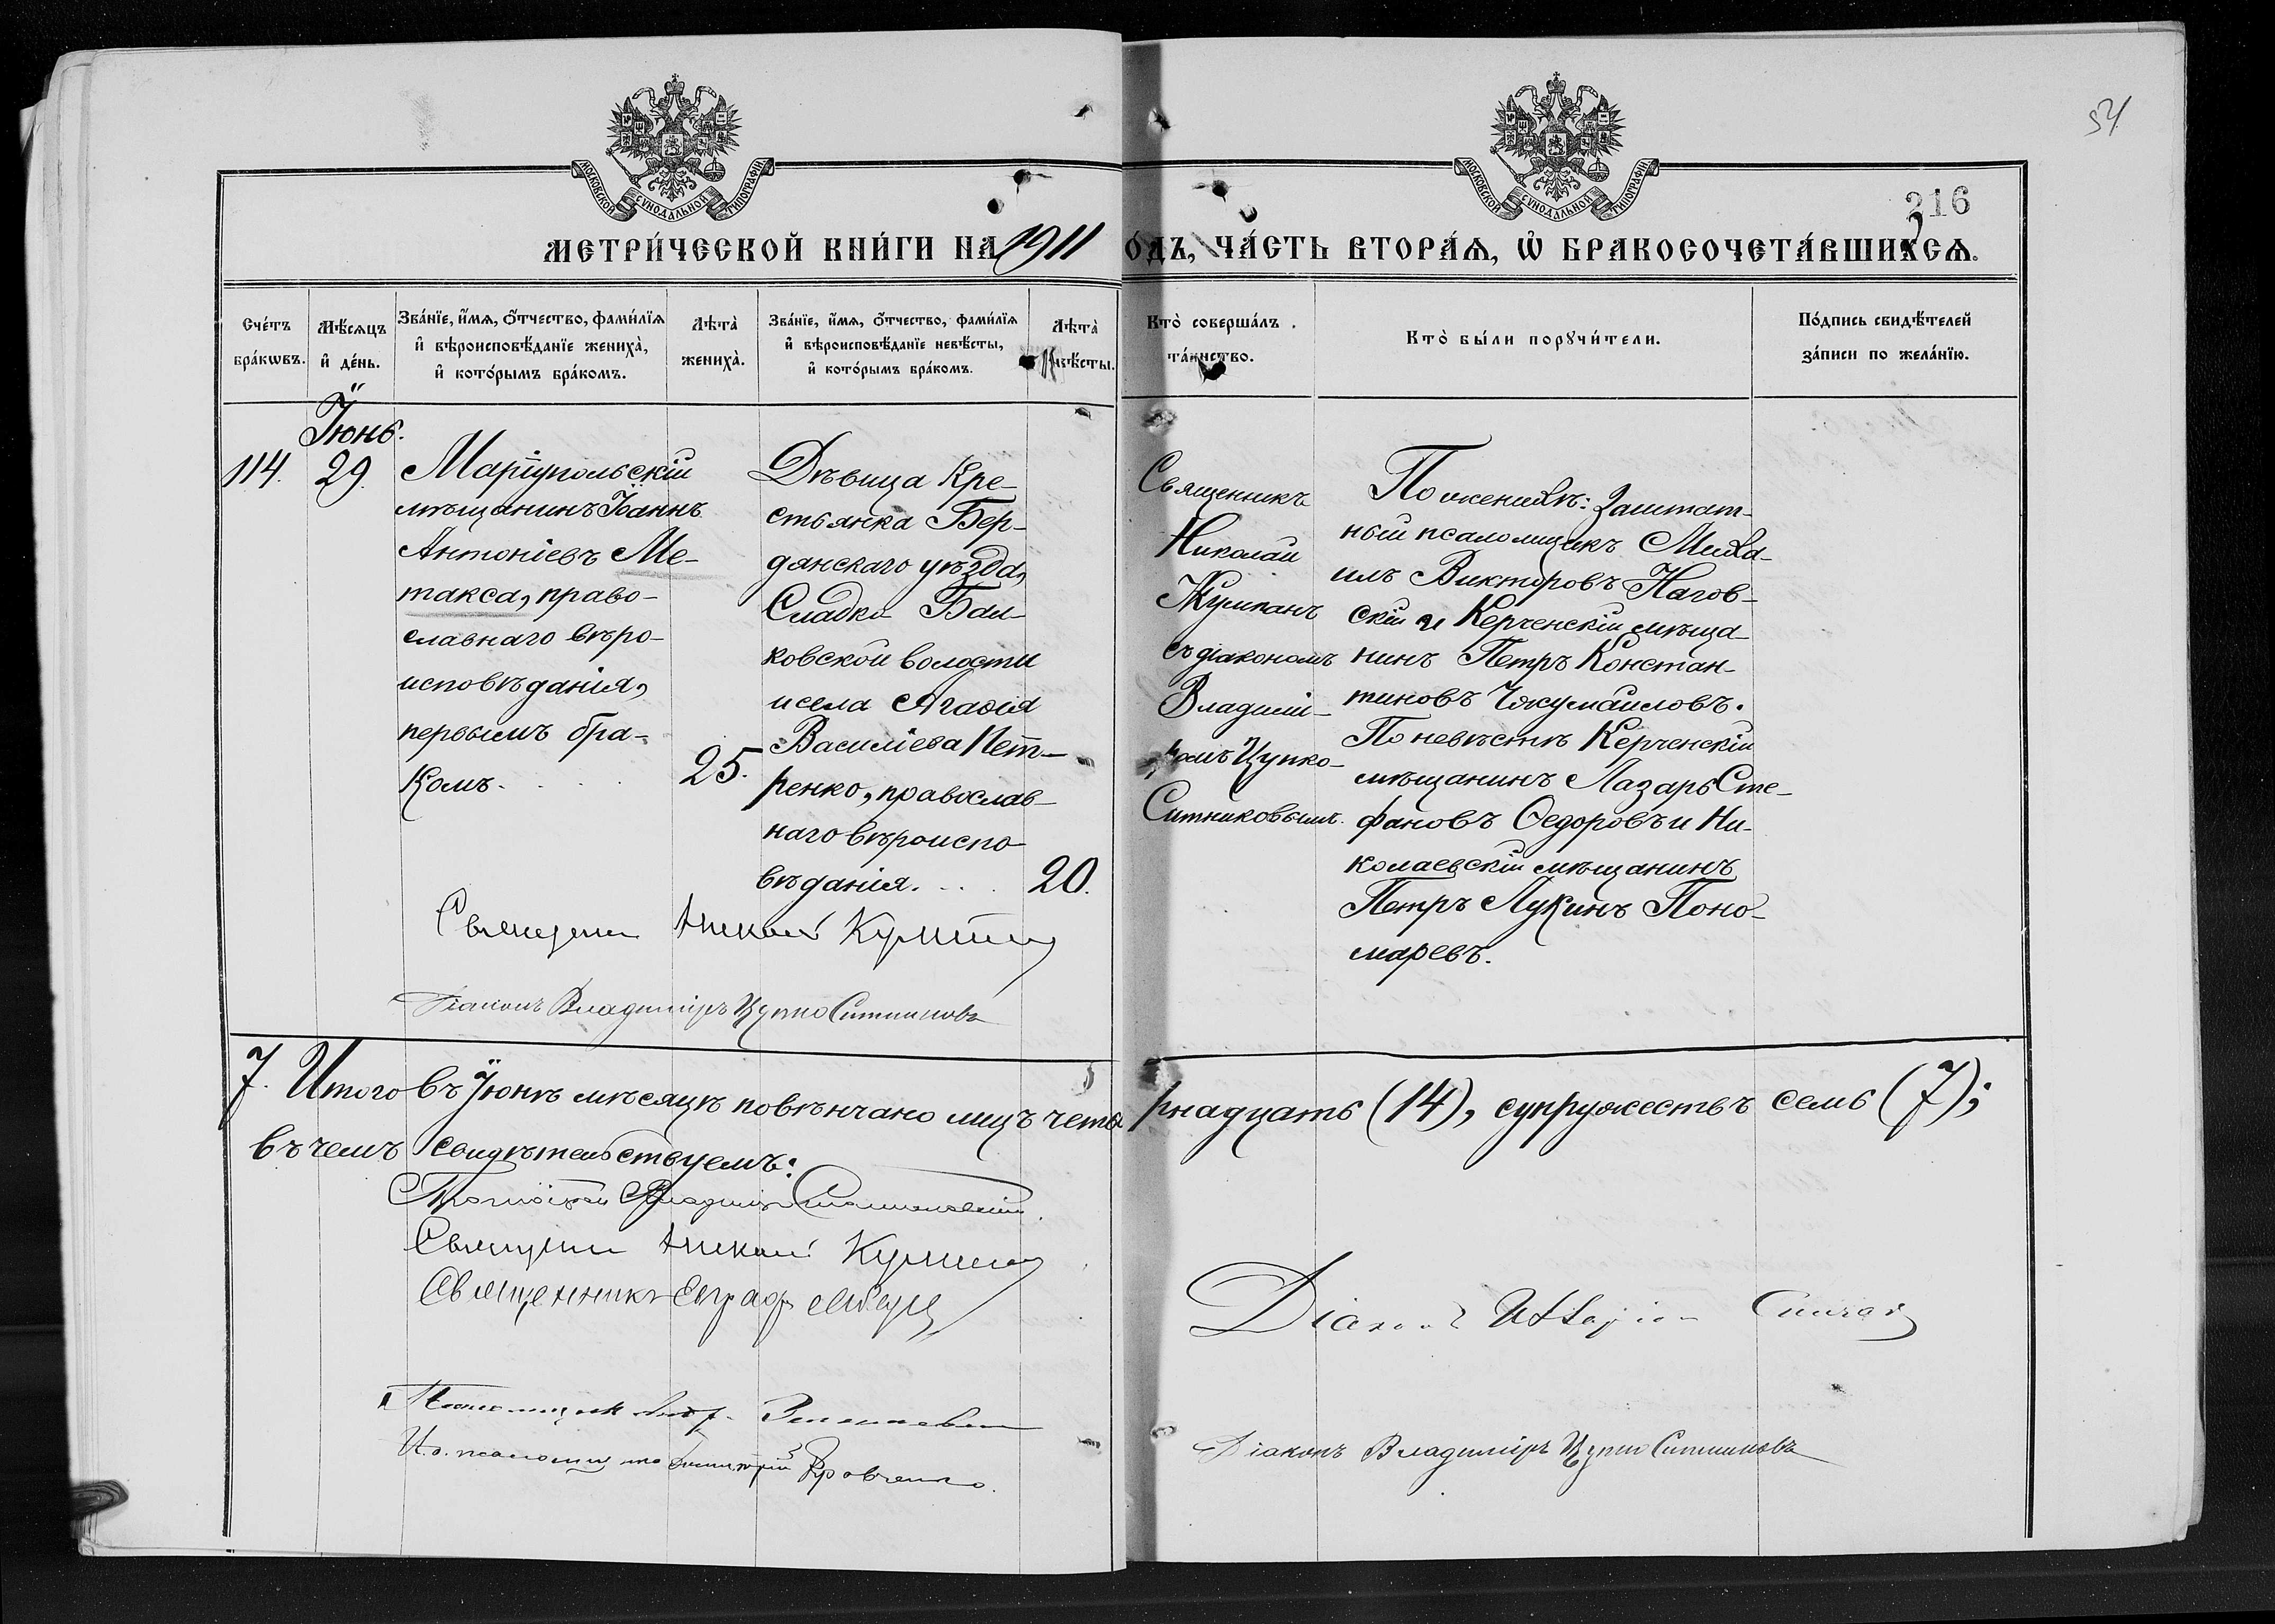 54
216
МОСКОВСКОЙ СѴНОДАЛЬНОЙ ТИПОГРАФІИ
МОСКОВСКОЙ СѴНОДАЛЬНОЙ ТИПОГРАФІИ
МЕТРИ́ЧЕСКОЙ КНИ́ГИ НА 1911
О́ДЪ, ЧА́СТЬ ВТОРА́Ѧ, Ѽ БРАКОСОЧЕТА́ВШИХСѦ.
Сче́тъ
бра́кѡвъ.
Мѣ́сяцъ
и҆ де́нь.
Зва́нїе, и҆́мѧ, о҆́тчество, фами́лїѧ
и҆ вѣроисповѣ́данїе жениха̀,
и҆ кото́рымъ бра́комъ.
Лѣта̀
жениха̀.
Зва́нїе, и҆́мѧ, о҆́тчество, фами́лїѧ
и҆ вѣроисповѣ́данїе невѣ́сты,
и҆ кото́рымъ бра́комъ.
Лѣта̀
невѣ́сты.
Кто̀ соверша́лъ
та́инство.
Кто̀ бы́ли порꙋчи́тели.
По́дпись свидѣ́телей
за́писи по жела́нїю.
Іюнь.
114.
29.
Маріупольскій
мѣщанинъ Іоаннъ
Антоніевъ Ме-
такса, право-
славнаго вѣро-
исповѣданія,
первымъ бра-
комъ.
25.
Дѣвица кре-
стьянка Бер-
дянскаго уѣзда,
Сладко Бал-
ковской волости
и села Агаѳія
Василіева Пет-
ренко, православ-
наго вѣроиспо-
вѣданія.
20.
Священникъ
Николай
Кумпанъ
съ діакономъ
Владимі-
ромъ Цупко-
Ситниковымъ.
По женихѣ: Заштат-
ный псаломщикъ Миха-
илъ Викторовъ Нагов-
скій и Керченскій мѣща
нинъ Петръ Констан-
тиновъ
По невѣстѣ Керченскій
мѣщанинъ Лазарь Сте-
фановъ Ѳедоровъ и Ни-
колаевскій мѣщанинъ
Петръ Лукинъ Поно-
маревъ.
Священникъ Николай Кумпанъ
Діаконъ Владиміръ Цупко Ситниковъ
7. Итого въ Іюнѣ мѣсяцѣ повѣнчано лицъ четы рнадцать (14), супружествъ семь (7);
въ чемъ свидѣтельствуемъ:
Протоіерей Владиміръ
Священникъ Николай Кумпанъ
Священникъ Евграфъ
Діаконъ
Псаломщикъ
И. о. псаломщика Димитрій
Діаконъ Владиміръ Цупко Ситниковъ